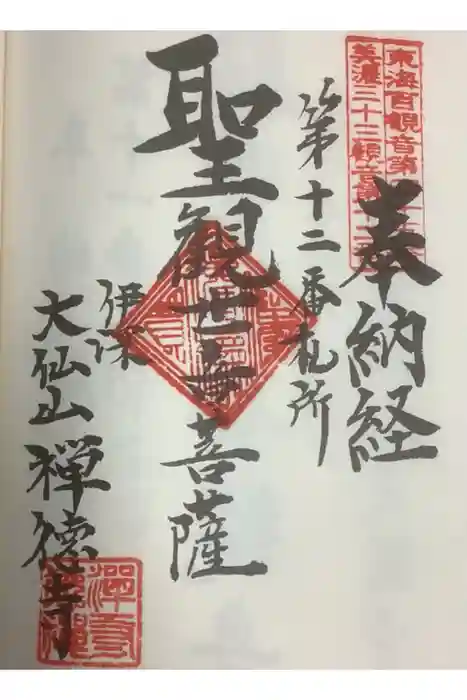 東海百観音第
美濃三十三観音第十二
奉納経
第十二番札所
聖観世音菩薩
伊深
大仙山 禅徳寺